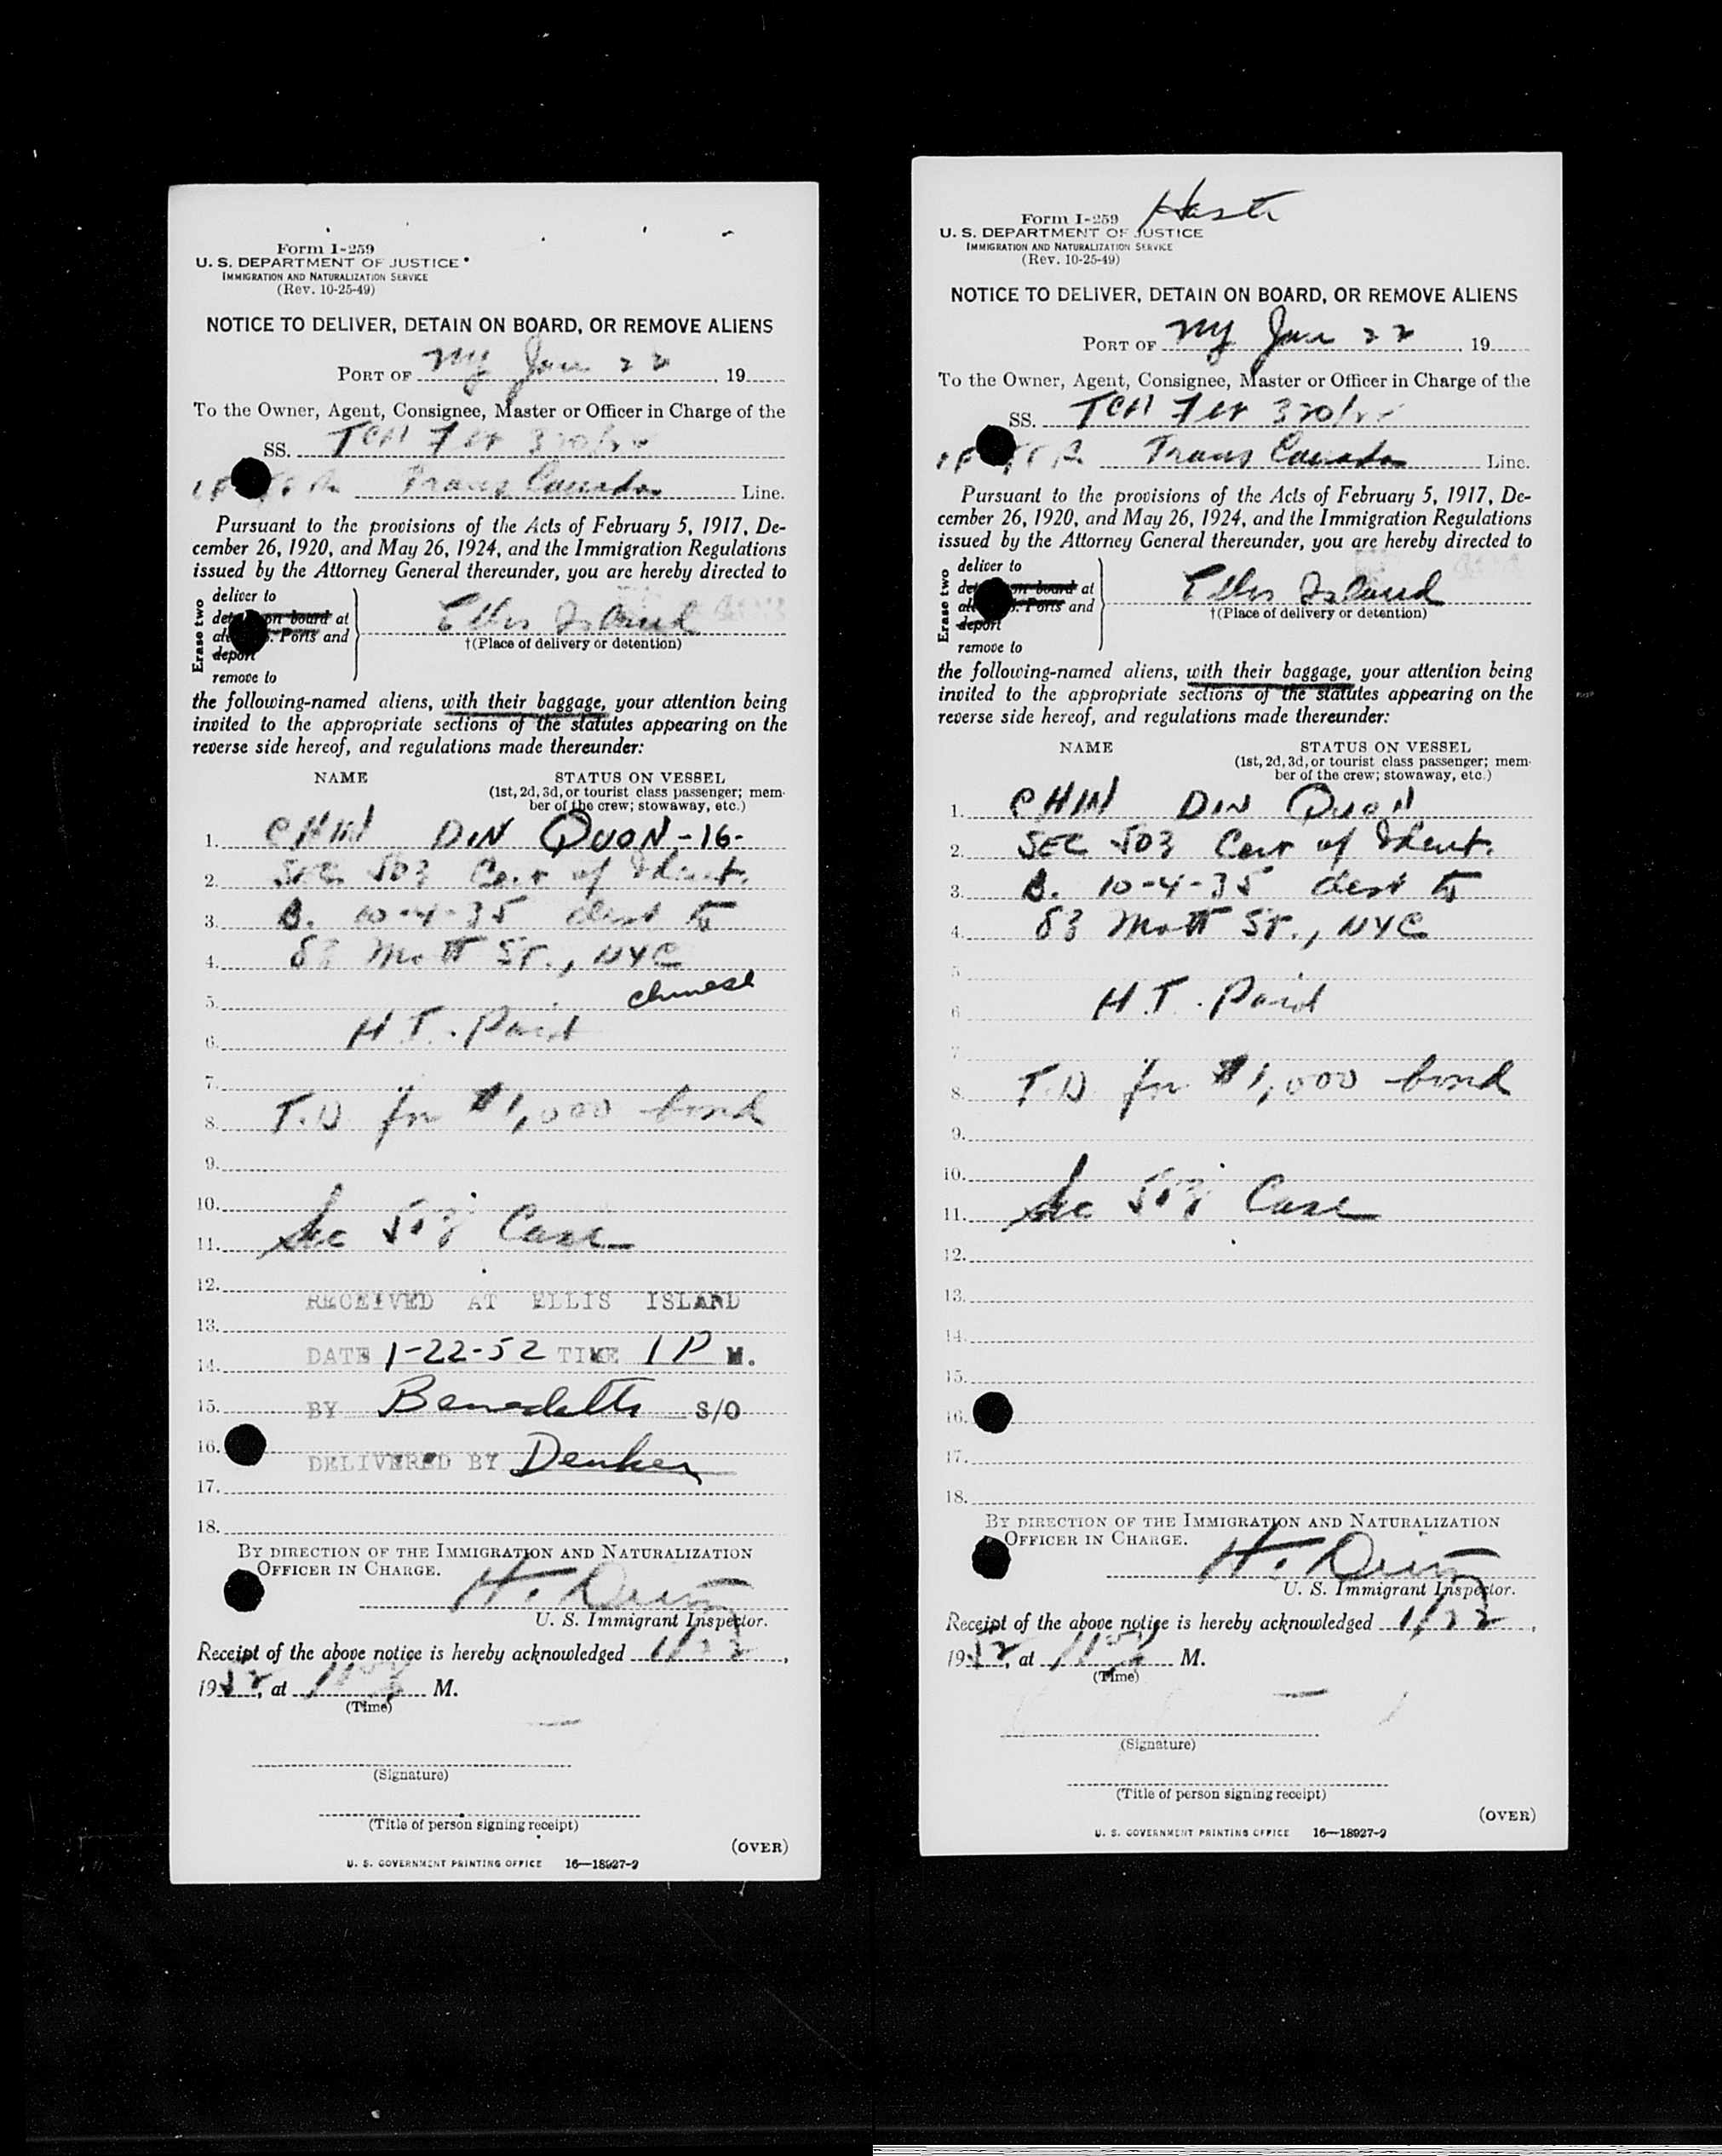 Form I-259
U. S. DEPARTMENT OF JUSTICE
IMMIGRATION AND NATURALIZATION SERVICE
(Rev. 10-25-49)
NOTICE TO DELIVER, DETAIN ON BOARD, OR REMOVE ALIENS
PORT OF NY Jan 22 19
To the Owner, Agent, Consignee, Master or Officer in Charge of the
SS. TCA Flt 320/22
Trans Canada Line.
Pursuant to the provisions of the Acts of February 5, 1917, De-
cember 26, 1920, and May 26, 1924, and the Immigration Regulations
issued by the Attorney General thereunder, you are hereby directed to
Erase two
deliver to
on board at
Ports and
deport
remove to
Ellis Island
†(Place of delivery or detention)
the following-named aliens, with their baggage, your attention being
invited to the appropriate sections of the statutes appearing on the
reverse side hereof, and regulations made thereunder:
NAME STATUS ON VESSEL
(1st, 2d, 3d, or tourist class passenger; mem-
ber of the crew; stowaway, etc.)
1. CHIN DIN QUON -16-
2. SEC 503 Cert of Ident.
3. B. 10-4-35 dest to
4. 83 Mott ST., NYC
5. Chinese
6. H.T. Paid
7.
8. T.D for $1,000 bond
9.
10.
11. Sec 503 Case
12.
RECEIVED AT ELLIS ISLAND
13.
14. DATE 1-22-52 TIME 1 P M.
15. BY Benedetto S/O
16.
DELIVERED BY Denker
17.
18.
BY DIRECTION OF THE IMMIGRATION AND NATURALIZATION
OFFICER IN CHARGE.
H.
U. S. Immigrant Inspector.
Receipt of the above notice is hereby acknowledged 1/22,
1952, at M.
(Time)
(Signature)
(Title of person signing receipt)
(OVER)
U. S. GOVERNMENT PRINTING OFFICE 16—18927-2
Form I-259
U. S. DEPARTMENT OF JUSTICE
IMMIGRATION AND NATURALIZATION SERVICE
(Rev. 10-25-49)
NOTICE TO DELIVER, DETAIN ON BOARD, OR REMOVE ALIENS
PORT OF NY Jan 22 19
To the Owner, Agent, Consignee, Master or Officer in Charge of the
SS. TCA Flt 320/22
Trans Canada Line.
Pursuant to the provisions of the Acts of February 5, 1917, De-
cember 26, 1920, and May 26, 1924, and the Immigration Regulations
issued by the Attorney General thereunder, you are hereby directed to
Erase two
deliver to
on board at
Ports and
deport
remove to
Ellis Island
†(Place of delivery or detention)
the following-named aliens, with their baggage, your attention being
invited to the appropriate sections of the statutes appearing on the
reverse side hereof, and regulations made thereunder:
NAME STATUS ON VESSEL
(1st, 2d, 3d, or tourist class passenger; mem-
ber of the crew; stowaway, etc.)
1. CHIN DIN QUON
2. SEC 503 Cert of Ident.
3. B. 10-4-35 dest to
4. 83 Mott ST., NYC
5.
6. H.T. Paid
7.
8. T.D for $1,000 bond
9.
10.
11. Sec 503 Case
12.
13.
14.
15.
16.
17.
18.
BY DIRECTION OF THE IMMIGRATION AND NATURALIZATION
OFFICER IN CHARGE.
H.
U. S. Immigrant Inspector.
Receipt of the above notice is hereby acknowledged 1/22,
1952, at M.
(Time)
(Signature)
(Title of person signing receipt)
(OVER)
U. S. GOVERNMENT PRINTING OFFICE 16—18927-2